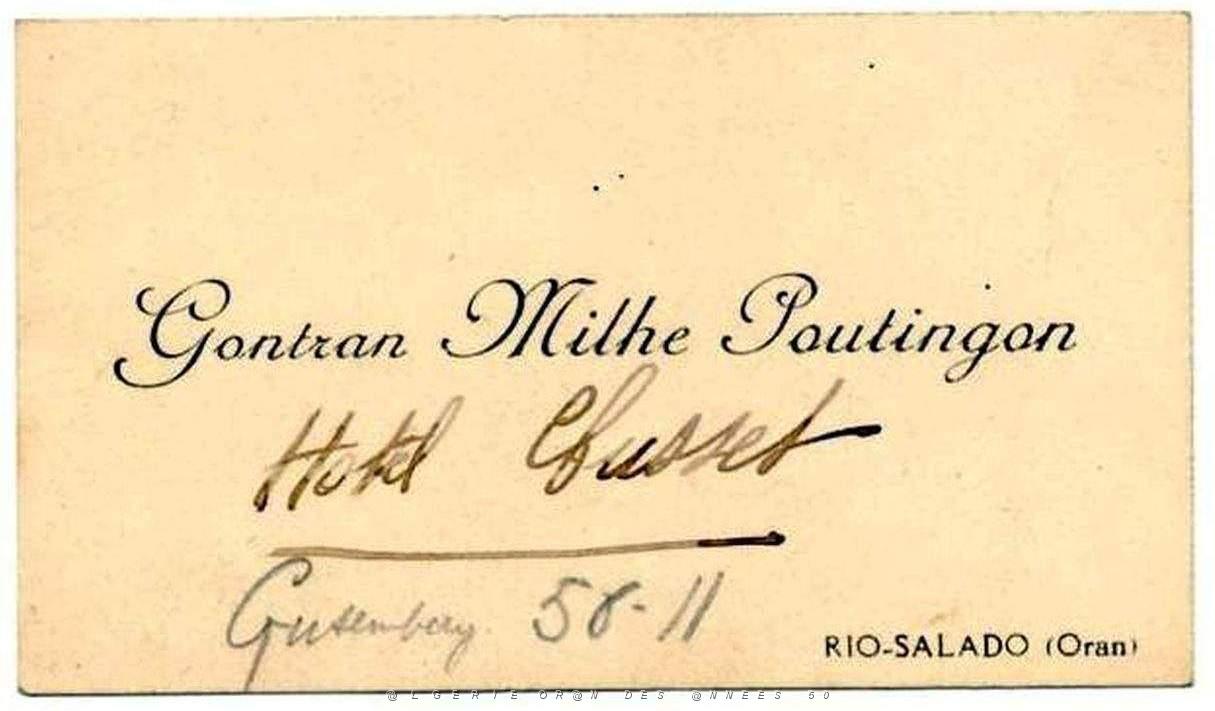 Gontran Milhe Poutingon
Hotel
Gutenberg 58-11
RIO-SALADO (Oran)
@LGERIE OR@N DES @NNEES 50